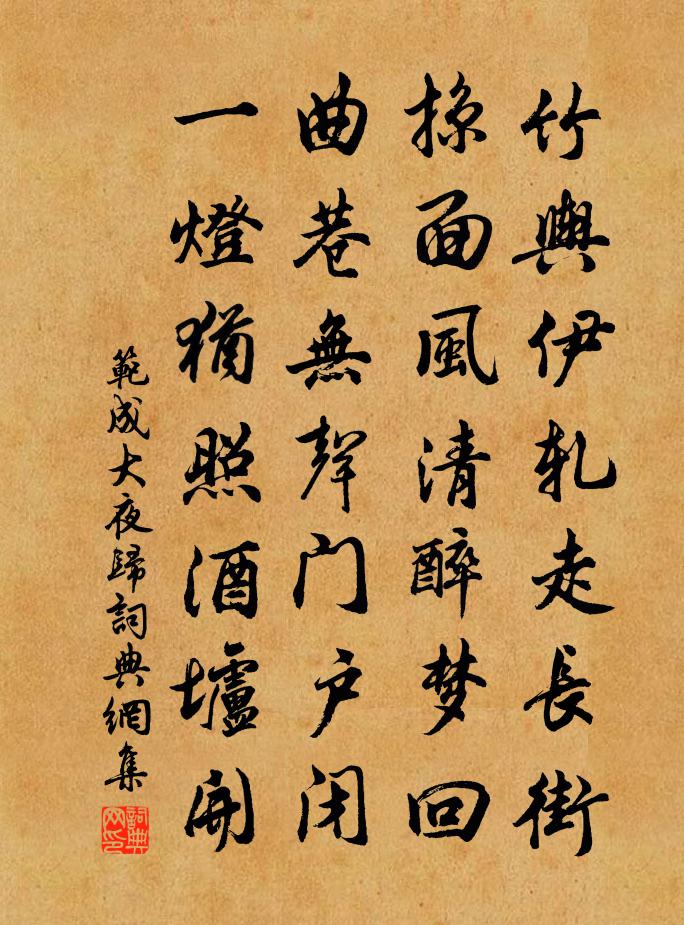 竹輿伊軋走長街
掠面風清醉梦回
曲巷無聲门户闭
一燈猶照酒壚開
範成大夜歸詞典網集
詞典網印